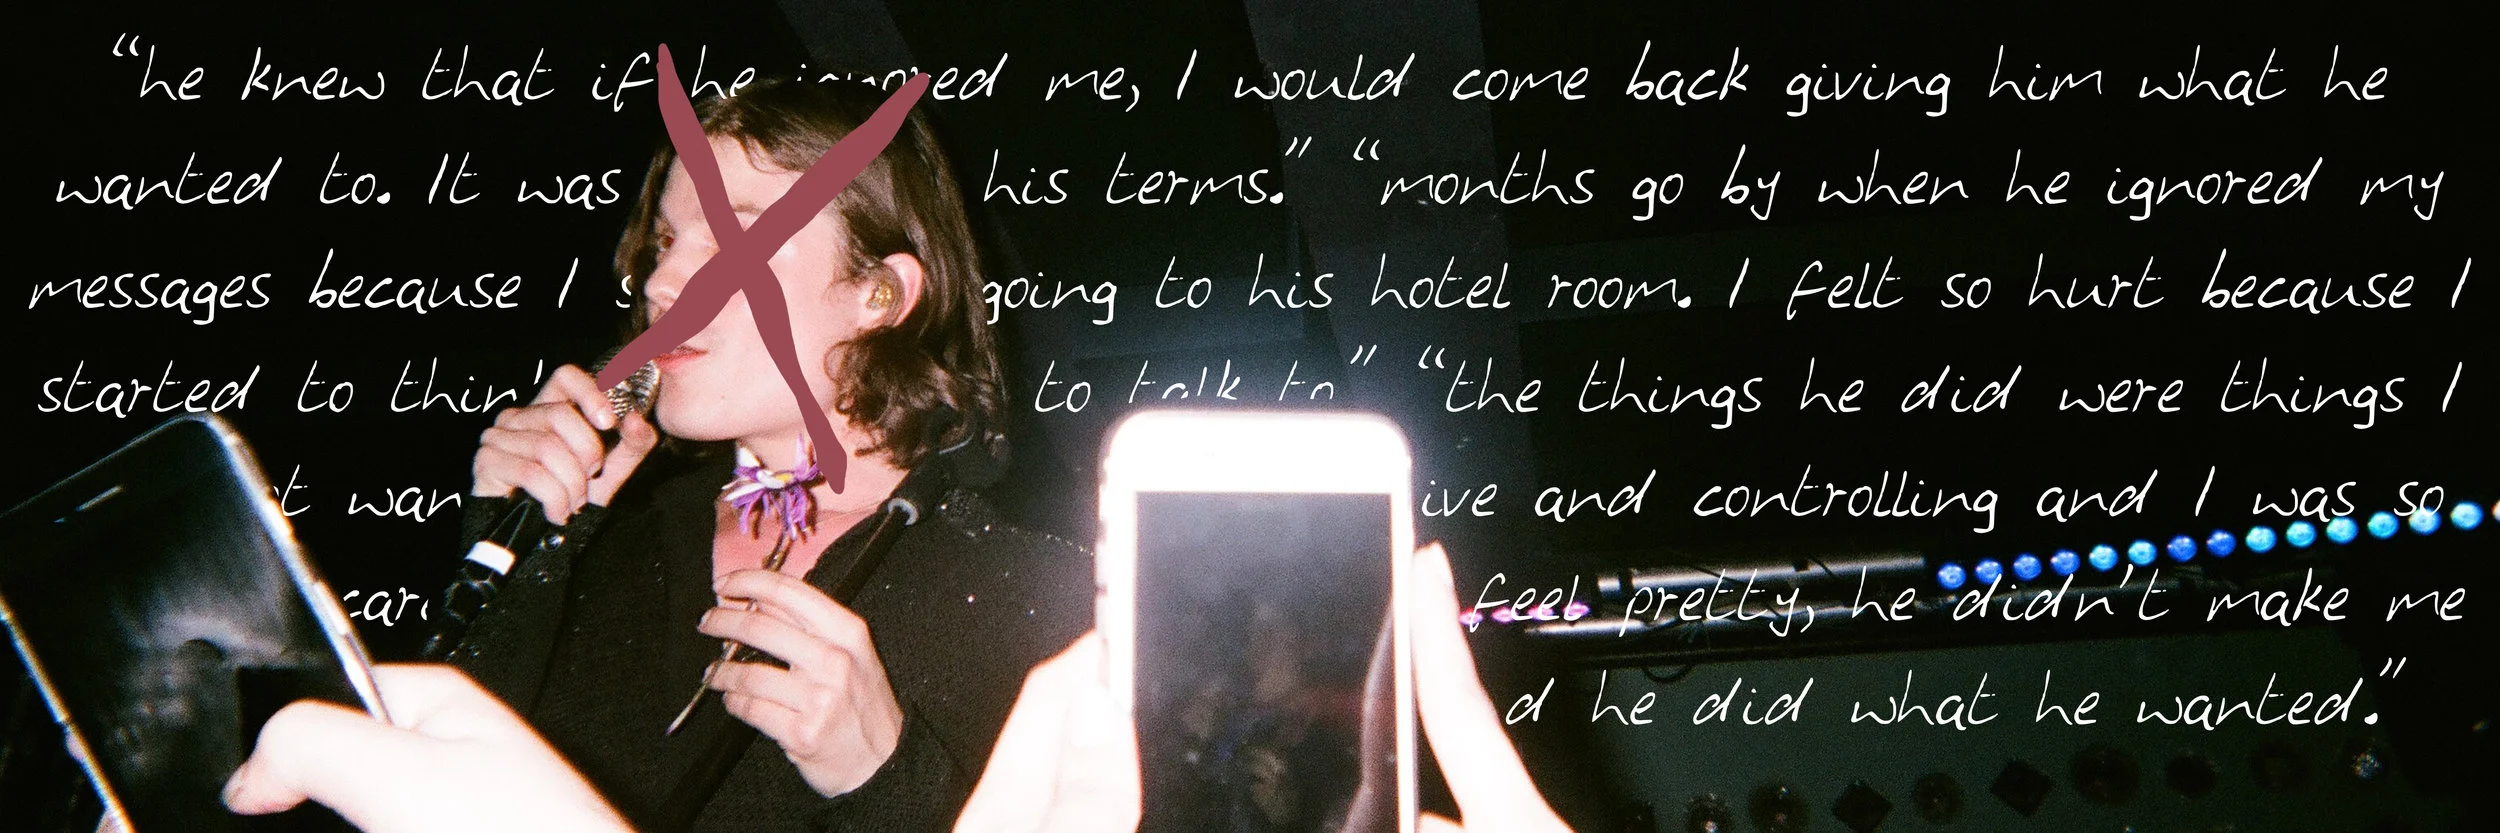 “he knew that if he ignored me, I would come back giving him what he
wanted to. It was his terms.” “months go by when he ignored my
messages because I going to his hotel room. I felt so hurt because I
started to to talk to” “the things he did were things I
and controlling and I was so
feel pretty, he didn't make me
he did what he wanted.”